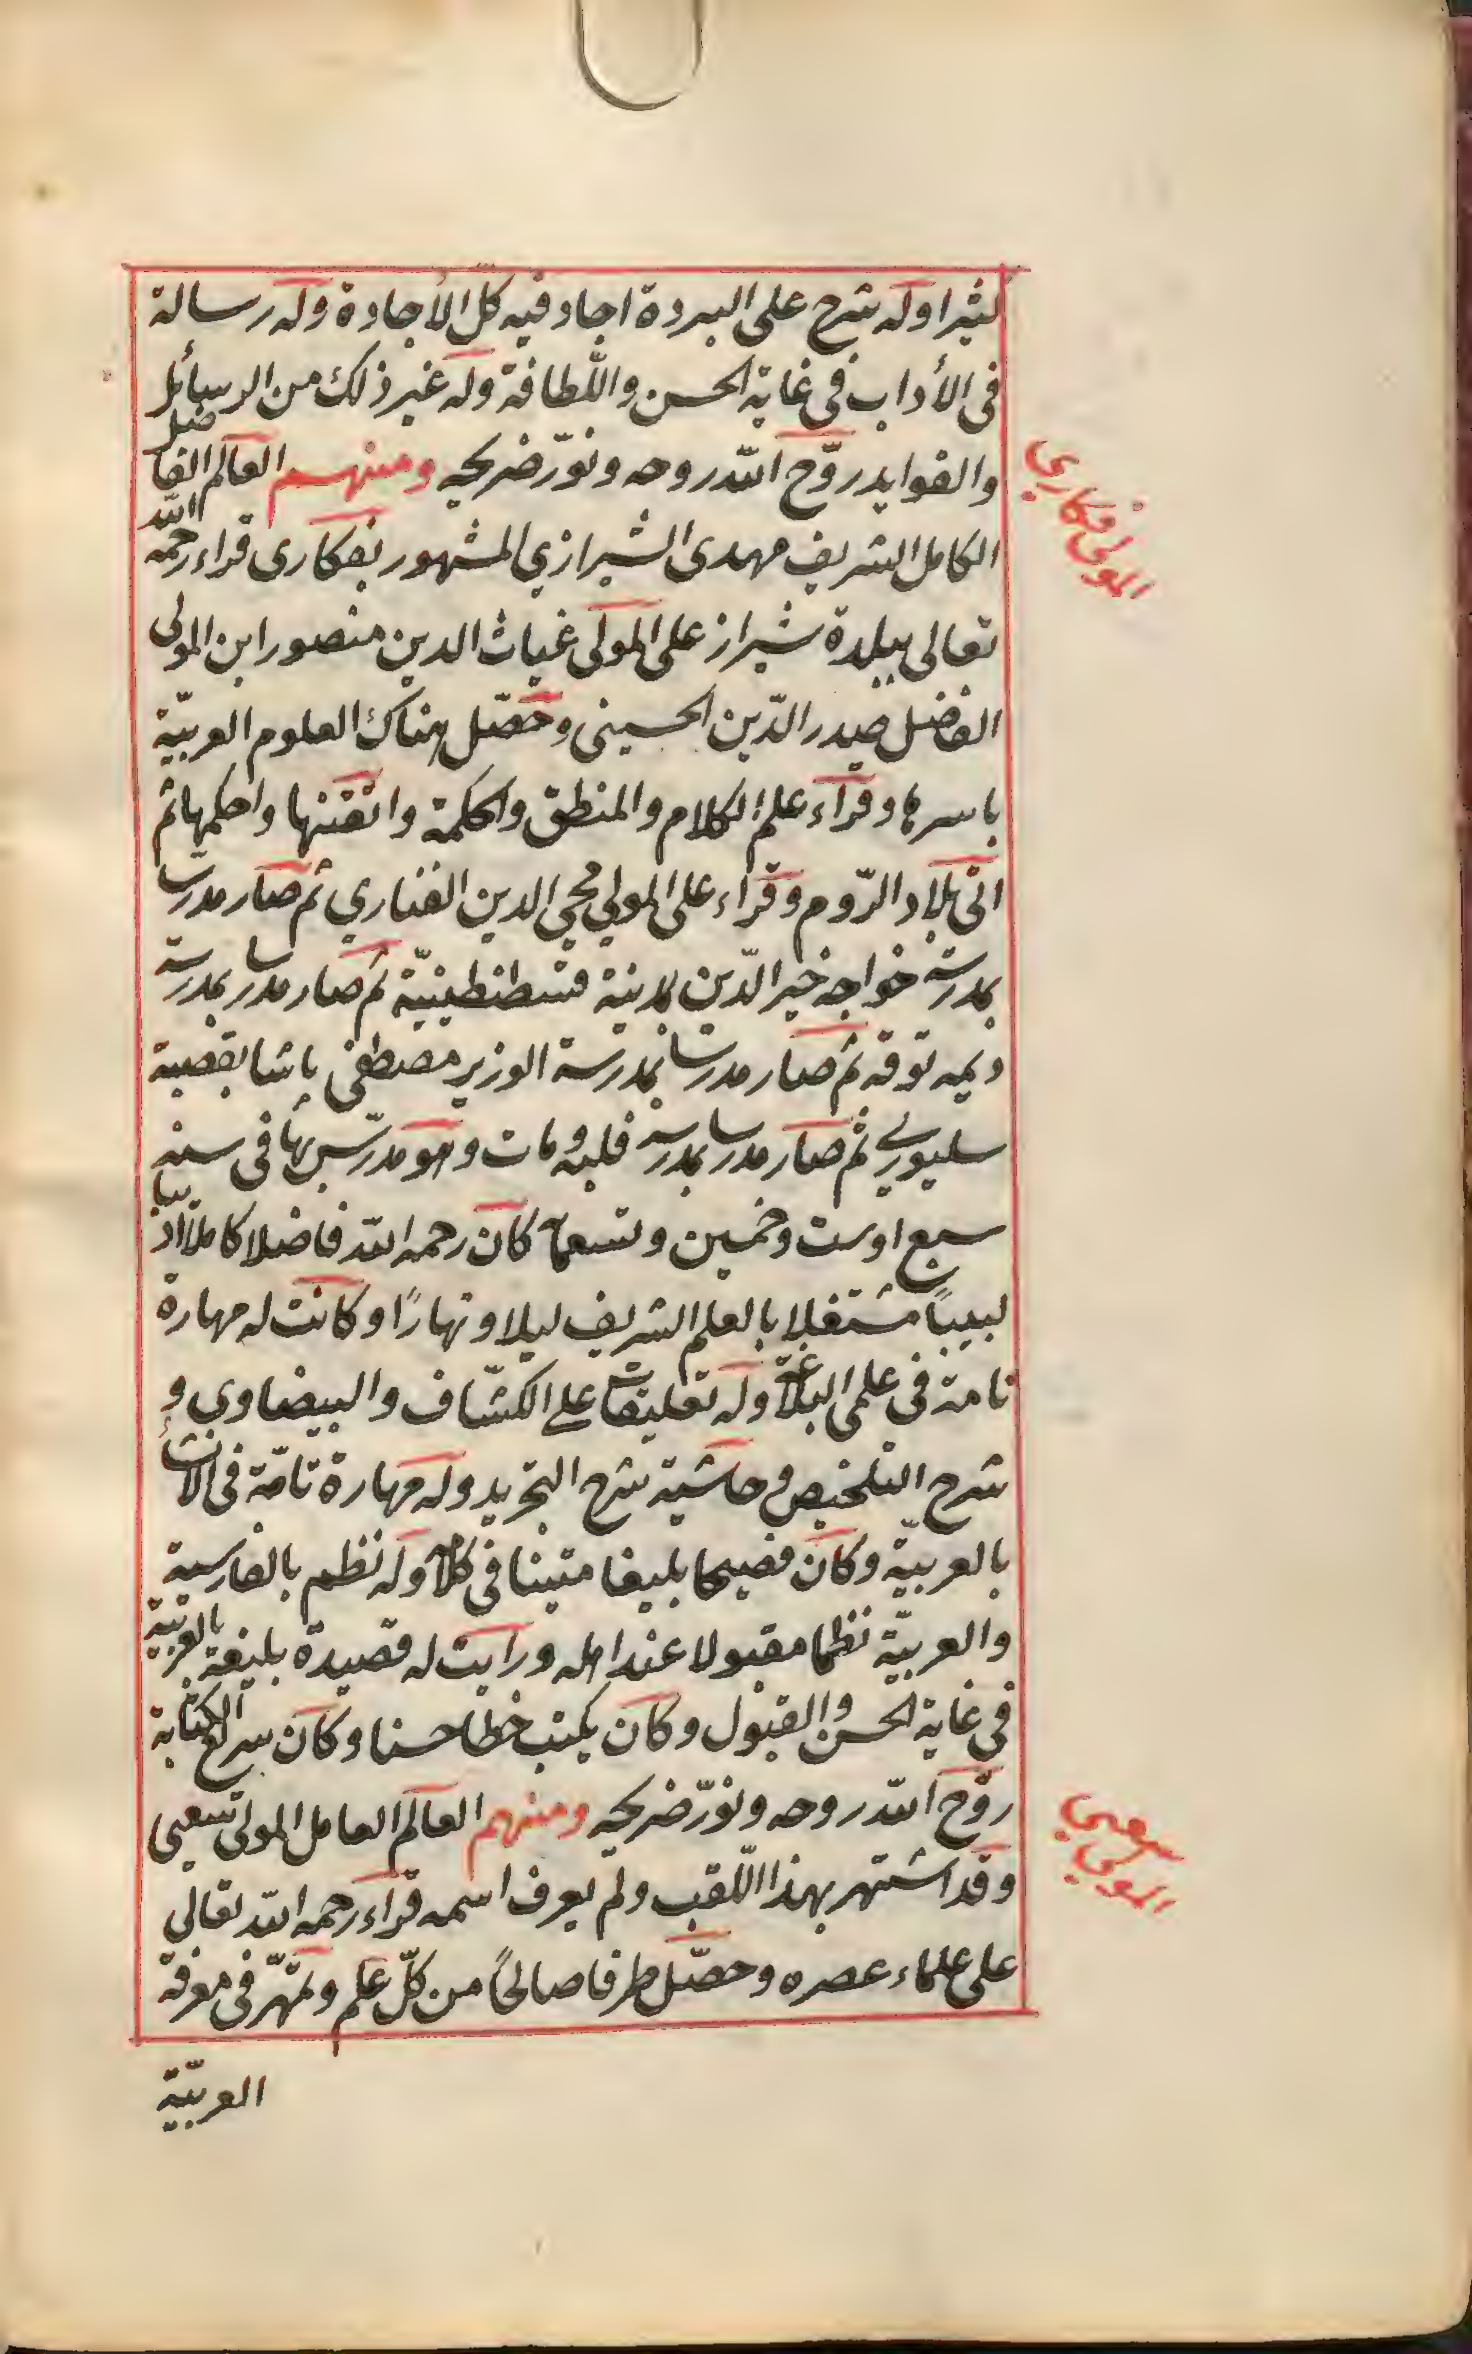 كثيرا وله شرح على البردة اجاد فيه كل الأجادة وله رسالة
فى الأداب فى غاية الحسن واللطافة وله غير ذلك من الرسائل
والفوايد روّح الله روحه ونوّر ضريحه ومنهم العالم الفاضل
الكامل الشريف مهدى الشيرازي المشهور بفكارى قراء رحمه الله
تعالى ببلدة شيراز على المولى غياث الدين منصور ابن المولى
الفاضل صدر الدّين الحسينى وحصّل هناك العلوم العربيّة
باسرها وقراء علم الكلام والمنطق والحكمة واتقنها واحكمها ثم
اتى بلاد الرّوم وقراء على المولي محيي الدين الفناري ثم صار مدرسا
بمدرسة خواجه خير الدّين بمدينة قسطنطينيّة ثم صار مدرسا بمدرسة
ديمه توقه ثم صار مدرسا بمدرسة الوزير مصطفى باشا بقصبة
سليوري ثم صار مدرسا بمدرسة فلبه ومات وهو مدرّس بها فى سنة
سبع اوست وخمسين وتسعمائة كان رحمه الله فاضلا كاملا اديبا
لبيبًا مشتغلا بالعلم الشريف ليلا ونهارًا وكانت له مهارة
تامة فى علمى البلاغة وله تعليقات على الكشّاف والبيضاوى و
شرح التلخيص وحاشية شرح التجريد وله مهارة تامّة فى الانشاء
بالعربيّة وكان فصيحا بليغا متينا فى كلامه وله نظم بالفارسية
والعربيّة نظما مقبولا عند اهله ورايت له قصيدة بليغة بالعربيّة
فى غاية الحسن والقبول وكان يكتب خطا حسنا وكان سريع الكتابة
روّح الله روحه ونوّر ضريحه ومنهم العالم العامل المولى سعيى
وقد اشتهر بهذا اللّقب ولم يعرف اسمه قراء رحمه الله تعالى
على علماء عصره وحصّل طرفا صالحًا من كلّ علم وتمهّر فى معرفة
العربيّة
المولى فكاري
المولى سعيى